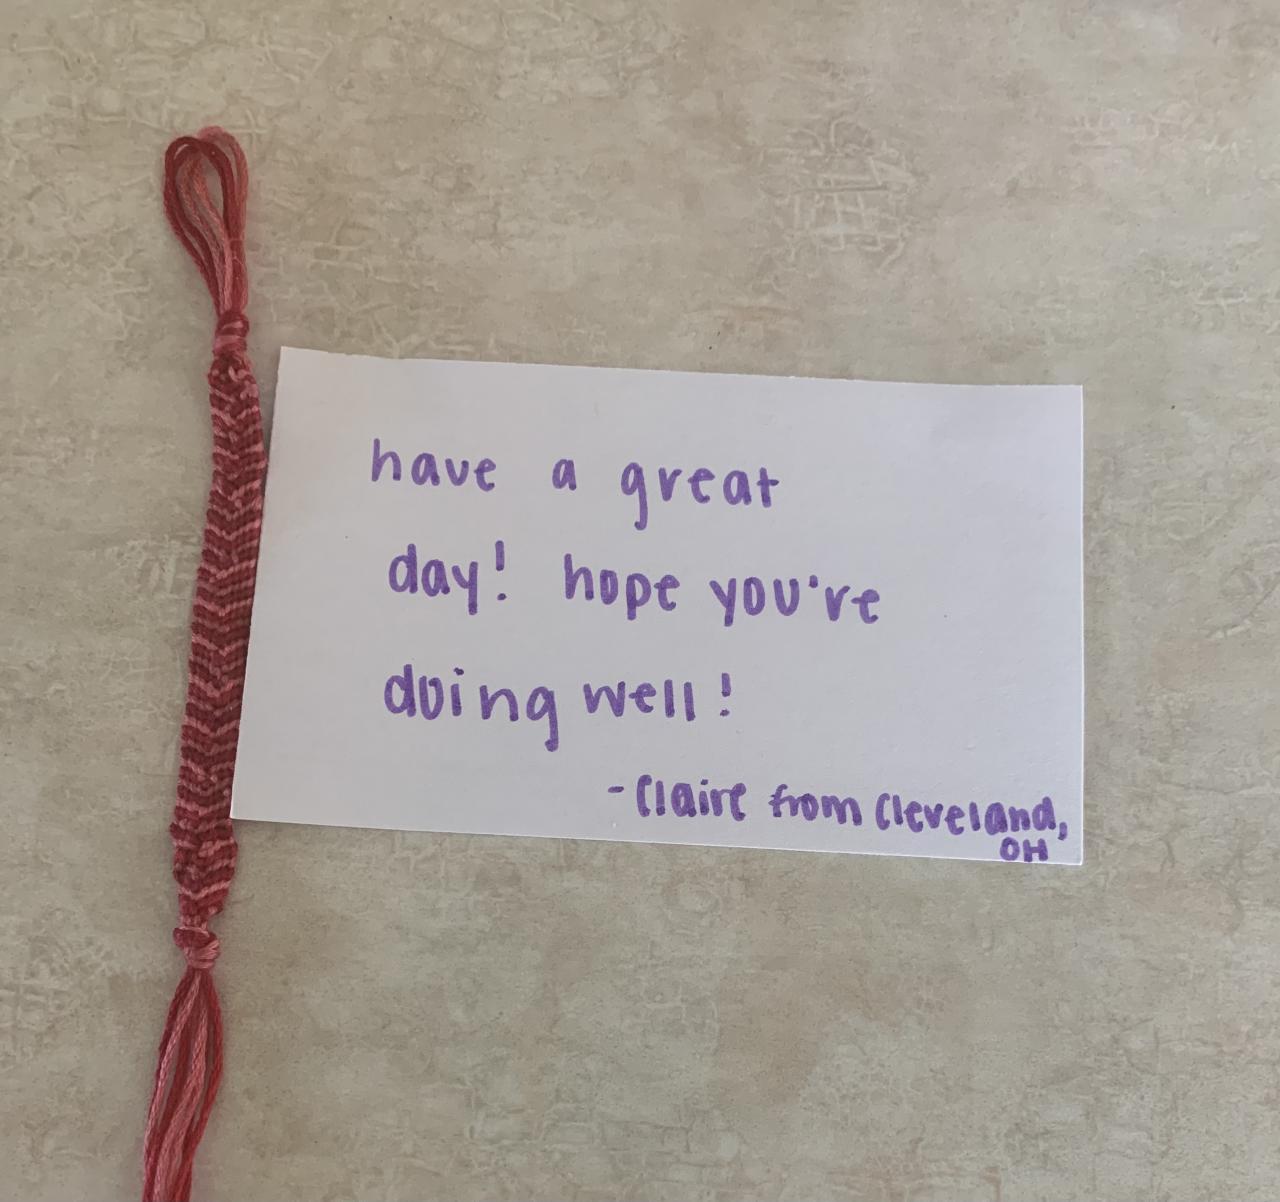 have a great
day! hope you're
doing well!
- Claire from Cleveland,
OH